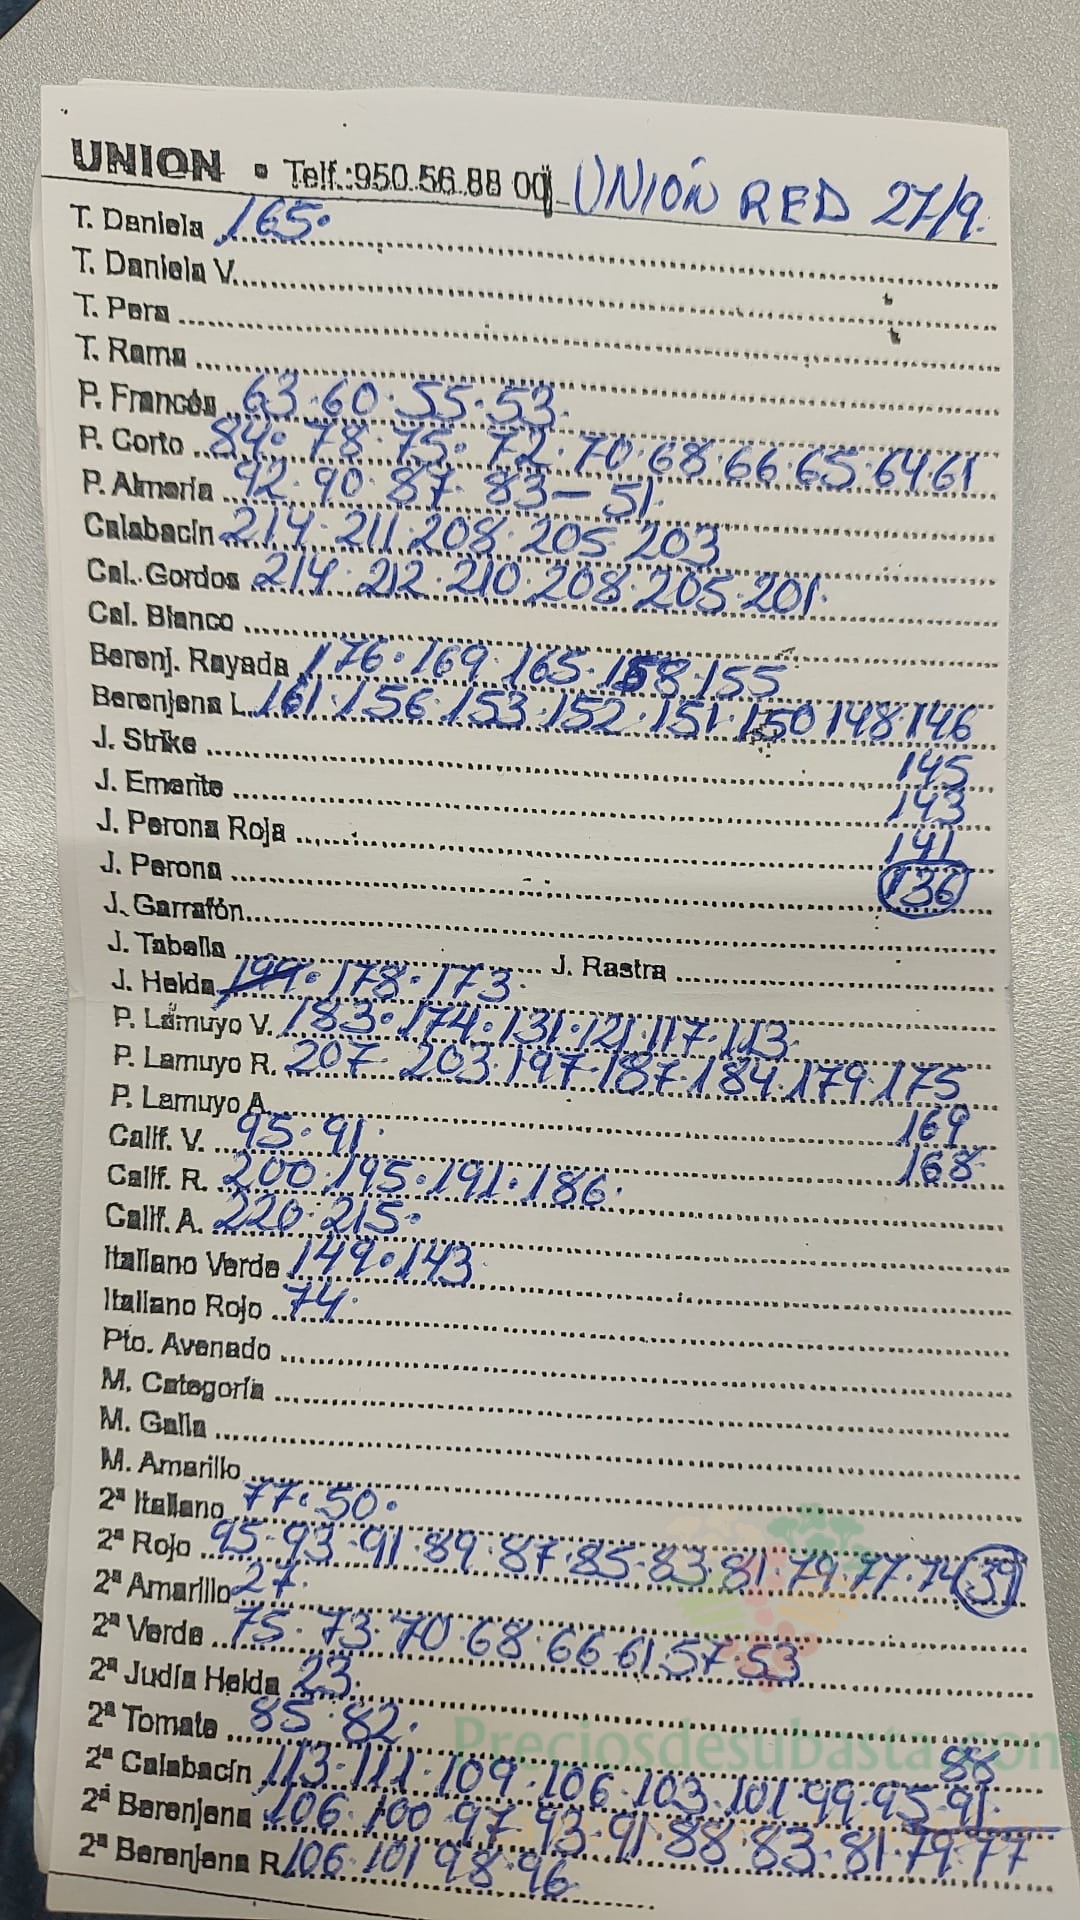 UNION • Telf.:950.56.88 00 UNIÓN RED 27/9.
T. Daniela 165.
T. Daniela V.
T. Pera
T. Rama
P. Francés 63.60.55.53.
P. Corto 84.78.75.72.70.68.66.65.64.61
P. Almería 92.90.87.83—51.
Calabacín 214.211.208.205.203
Cal. Gordos 214.212.210.208.205.201.
Cal. Blanco
Berenj. Rayada 176.169.165.158.155
Berenjena L. 161.156.153.152.151.150 148.146
J. Strike 145
J. Emerite 143
J. Perona Roja 141
J. Perona 136
J. Garrafón
J. Tabella J. Rastra
J. Helda 199.178.173.
P. Lamuyo V. 183.174.131.121.117.113.
P. Lamuyo R. 207.203.197.187.184.179.175
P. Lamuyo A. 169
Calif. V. 95.91. 168
Calif. R. 200.195.191.186.
Calif. A. 220.215.
Italiano Verde 149.143
Italiano Rojo 74.
Pto. Avenado
M. Categoría
M. Galia
M. Amarillo
2ª Italiano 77.50.
2ª Rojo 95.93.91.89.87.85.83.81.79.77.74 39
2ª Amarillo 27.
2ª Verde 75.73.70.68.66 61.57.53
2ª Judía Helda 23.
2ª Tomate 85.82.
Preciosdesubasta.com
88
2ª Calabacín 113.111.109.106.103.101.99.95.91.
2ª Berenjena 106.100.97.93.91.88.83.81.79.77
2ª Berenjena R. 106.101 98.96